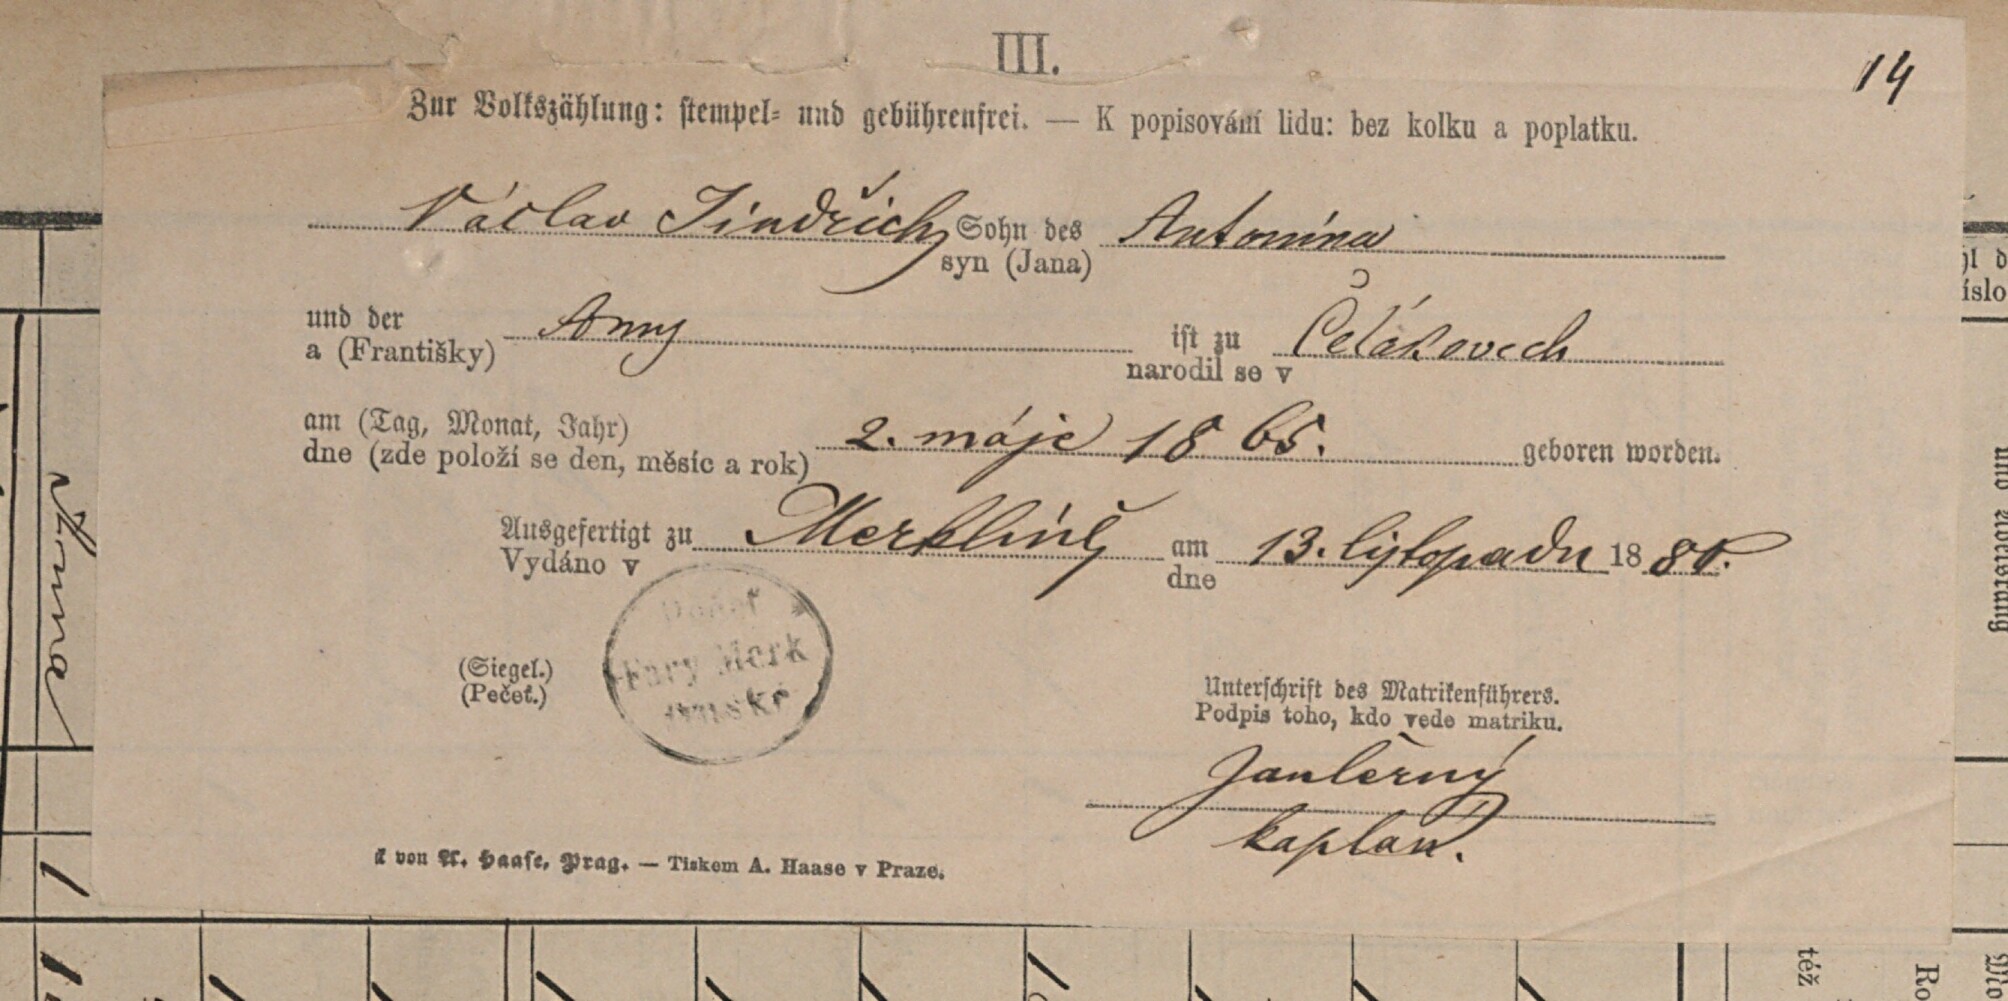 III.
14
Zur Volkszählung: stempel- und gebührenfrei. — K popisování lidu: bez kolku a poplatku.
Václav Jindřich Sohn des Antonína
syn (Jana)
und der Anny ist zu Čeľákovech
a (Františky) narodil se v
am (Tag, Monat, Jahr) 2. máje 1865. geboren worden.
dne (zde položí se den, měsíc a rok)
Ausgefertigt zu Merklíně am 13. listopadu 1880.
Vydáno v dne
Fary Merk
(Siegel.)
(Pečeť.)
Unterschrift des Matrikenführers.
Podpis toho, kdo vede matriku.
Jan Černý
kaplan.
von A. Haase, Prag. — Tiskem A. Haase v Praze.
Anna
též